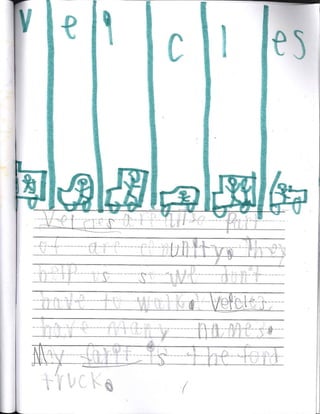 veicles
Veicles are allso part
of are comunity. they
help us so we don't
have to walk. Veicles
have many names.
My favrit is the ford
truck.